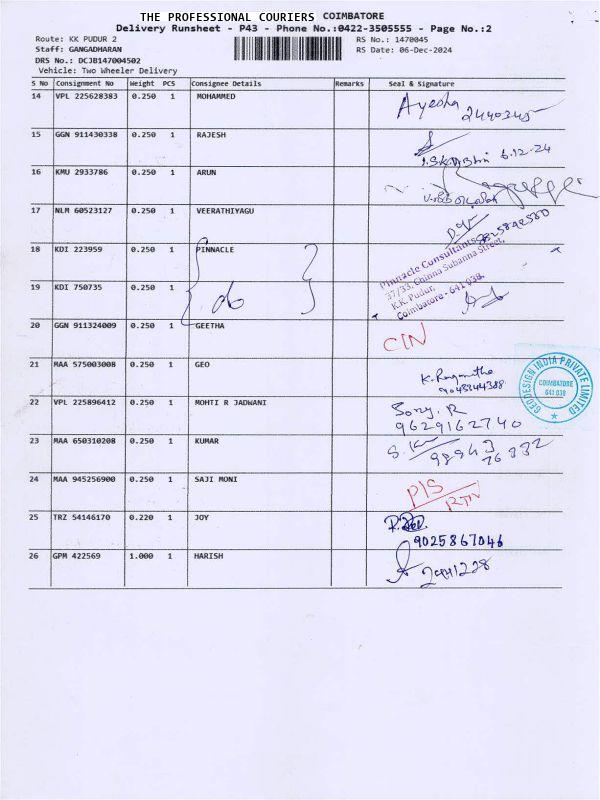 THE PROFESSIONAL COURIERS COIMBATORE
Delivery Runsheet - P43 - Phone No.:0422-3505555 - Page No.:2
Route: KK PUDUR 2
RS No.: 1470045
Staff: GANGADHARAN
RS Date: 06-Dec-2024
DRS No.: DCJB147004502
Vehicle: Two Wheeler Delivery
S No Consignment No Weight PCS Consignee Details Remarks Seal & Signature
14 VPL 225628383 0.250 1 MOHAMMED Ayesha
2440345
15 GGN 911430338 0.250 1 RAJESH
6.12.24
16 KMU 2933786 0.250 1 ARUN
17 NLM 60523127 0.250 1 VEERATHIYAGU
18 KDI 223959 0.250 1 PINNACLE
Pinnacle Consultants
37/33, Chinna Subanna Street,
K.K. Pudur,
Coimbatore - 641 038.
19 KDI 750735 0.250 1
20 GGN 911324009 0.250 1 GEETHA CIN
21 MAA 575003008 0.250 1 GEO
GEODESIGN INDIA PRIVATE LIMITED
COIMBATORE
641 038
22 VPL 225896412 0.250 1 MOHTI R JADWANI Sony. R
9629162740
23 MAA 650310208 0.250 1 KUMAR
24 MAA 945256900 0.250 1 SAJI MONI P/S
RTN
25 TRZ 54146170 0.220 1 JOY
9025867046
26 GPM 422569 1.000 1 HARISH
2441228